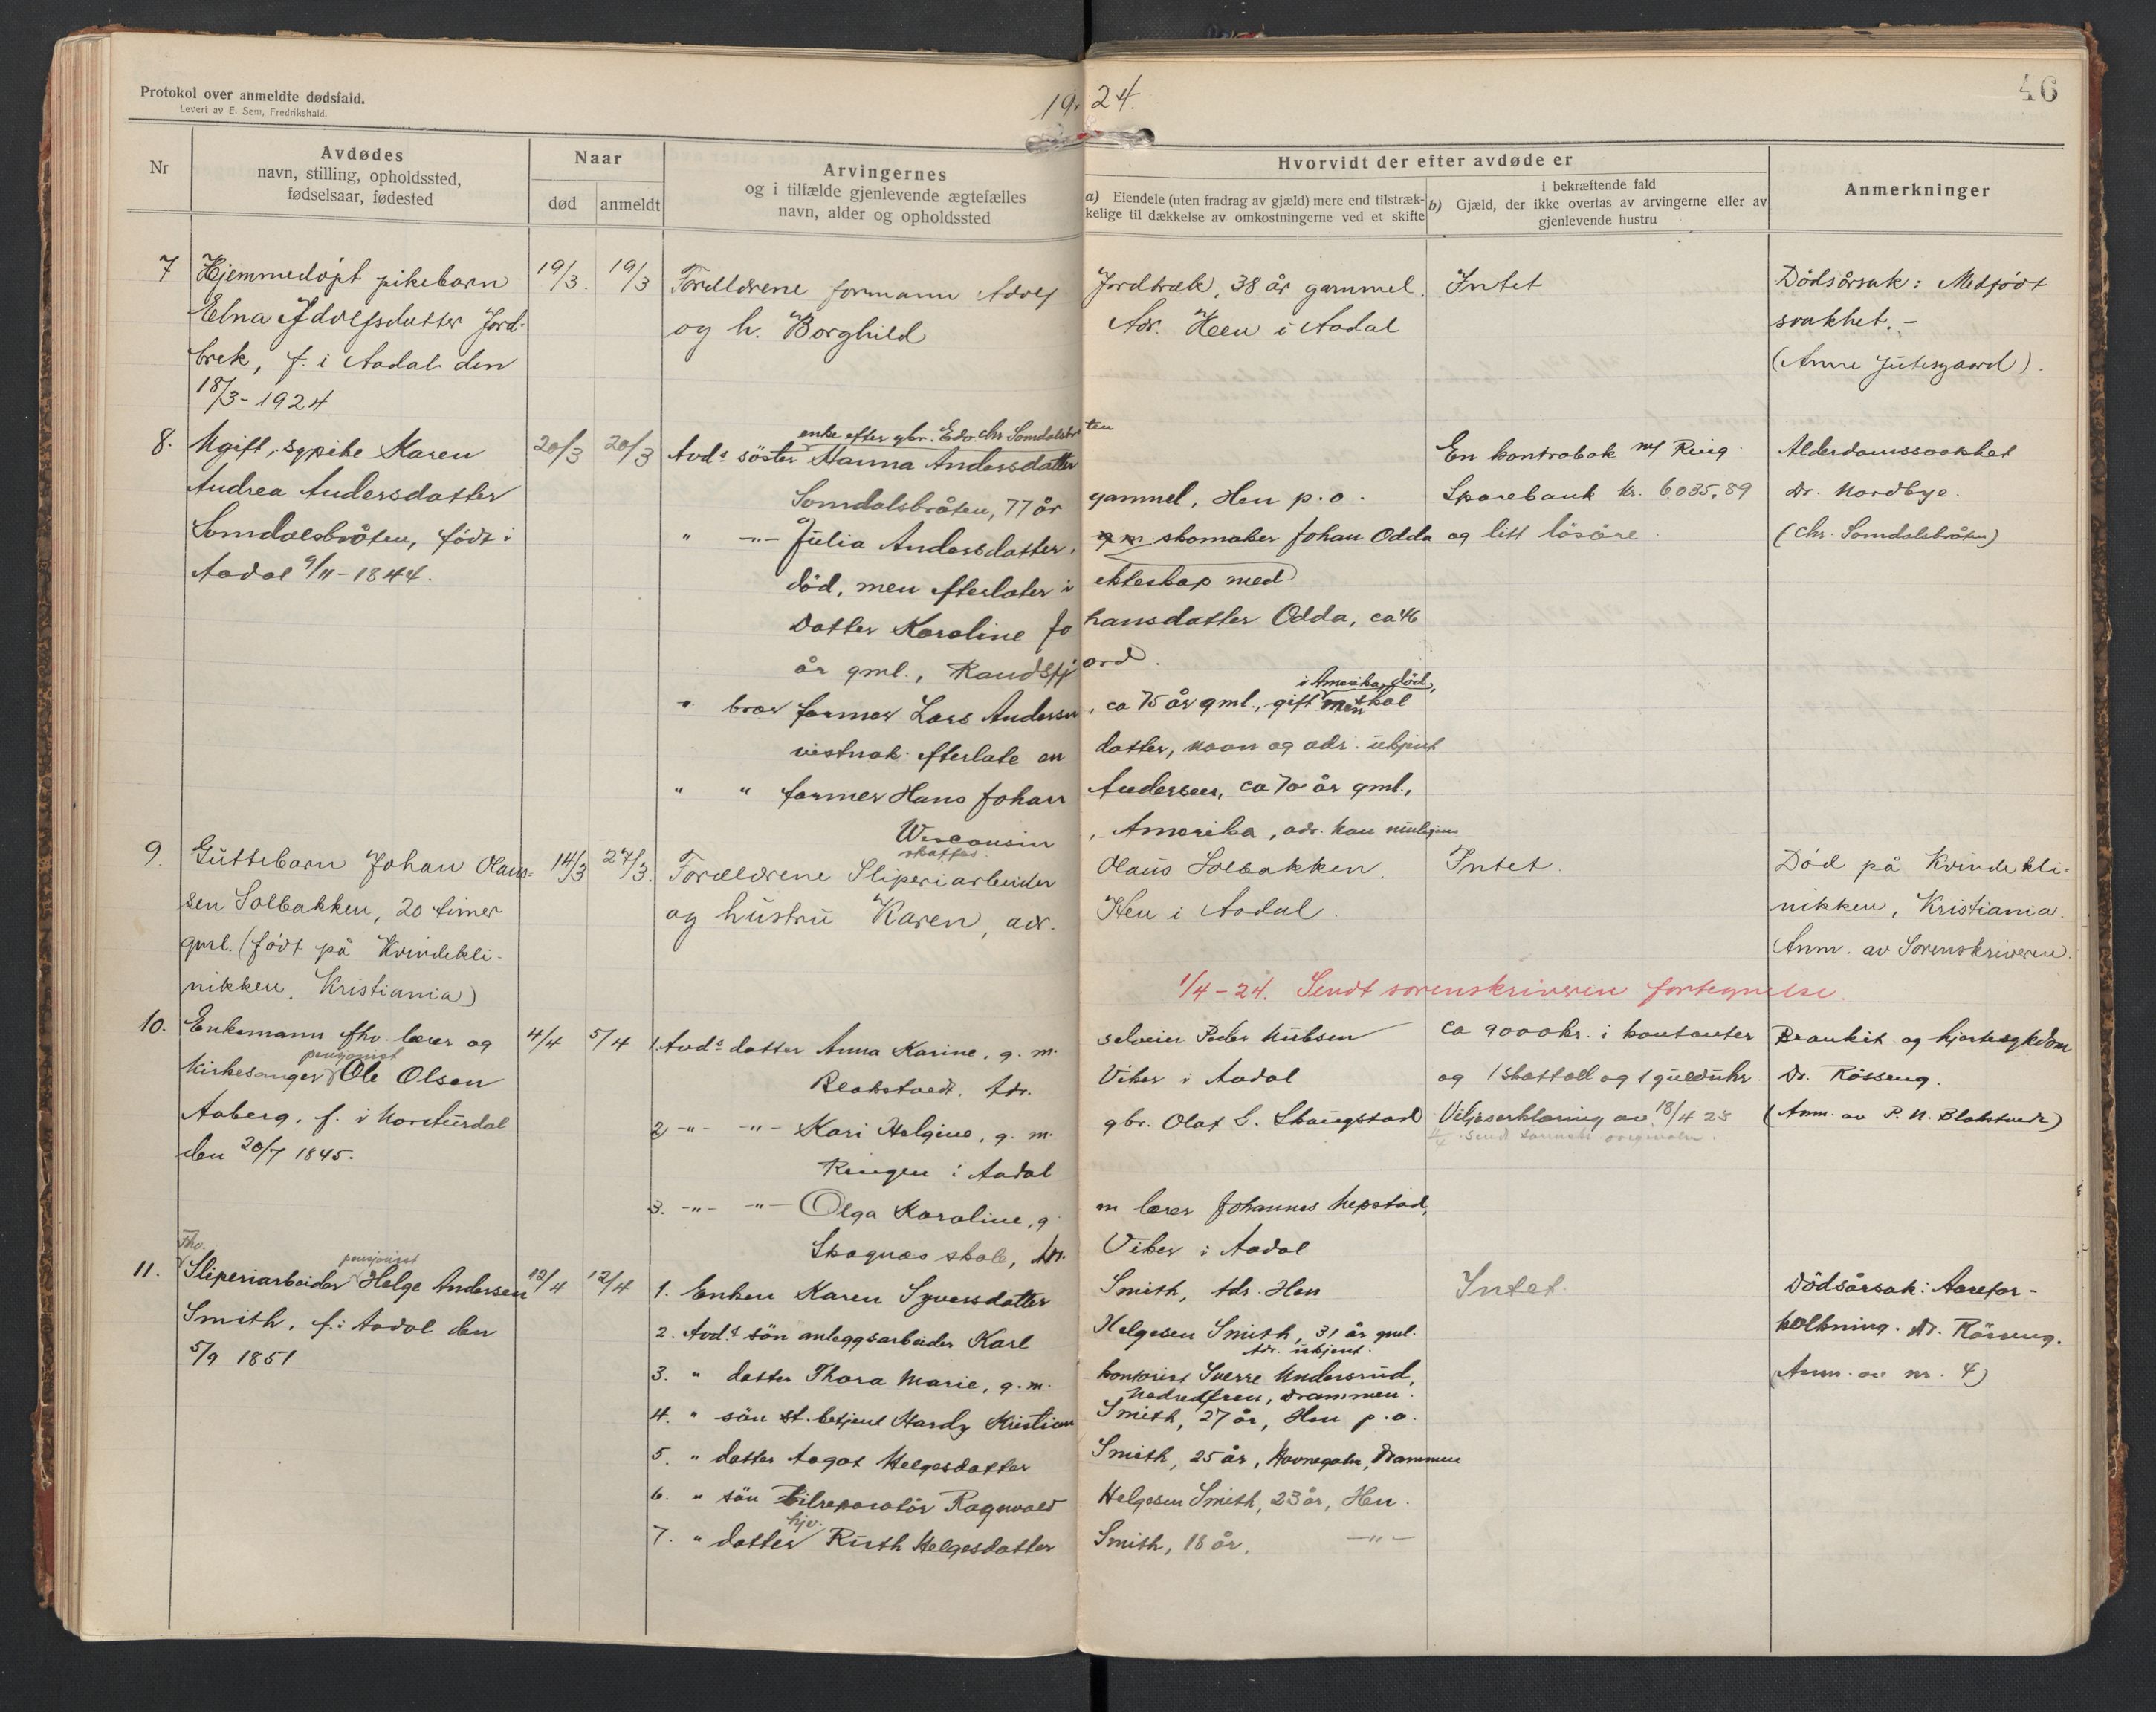 Protokol over anmeldte dødsfald.
Levert av E. Sem, Fredrikshald.
1924.
46
Nr
Avdødes
navn, stilling, opholdssted,
fødselsaar, fødested
Naar
død
anmeldt
Arvingernes
og i tilfælde gjenlevende ægtefælles
navn, alder og opholdssted
Hvorvidt der efter avdøde er
a) Eiendele (uten fradrag av gjæld) mere end tilstræk-
kelige til dækkelse av omkostningerne ved et skifte
i bekræftende fald
b) Gjæld, der ikke overtas av arvingerne eller av
gjenlevende hustru
Anmerkninger
7
Hjemmedøpt pikebarn
Elna Adolfsdatter Jord-
brek, f. i Aadal den
18/3-1924
19/3.
19/3
Foreldrene formann Adolf Jordbræk, 38 år gammel.
og h. Borghild Adr. Heen i Aadal
Intet
Dödsårsak: Medfödt
svakhet. -
(Anne Jütesgaard).
8.
Ugift, sypike Karen
Andrea Andersdatter
Somdalsbråten, född i
Aadal 9/11-1844.
20/3
20/3
enke efter gbr. Edv. Chr Somdalsbråten
Avds söster Hanna Andersdatter
Somdalsbråten, 77 år gammel, Hen p.o.
" -"- Julia Andersdatter, g m. skomaker Johan Odda
död, men efterlater i ekteskap med
Datter Karoline Johansdatter Odda, ca 46
år gml., Randsfjord.
" bror farmer Lars Andersen, ca 75 år gml., gift i Amerika, död, men skal
vistnok efterlate en datter, navn og adr. ukjent
" " farmer Hans Johan Andersen, ca 70 år gml.,
Wisconsin, Amerika, adr. kan muligens
skaffes.
En kontrabok m/ Ring.
Sparebank kr. 6035,89
og litt lösöre.
Alderdomssvakhet
Dr. Nordbye.
(Chr. Somdalsbråten)
9.
Guttebarn Johan Olaus-
sen Solbakken, 20 timer
gml. (født på Kvindekli-
nikken, Kristiania)
14/3
27/3.
Forældrene Sliperiarbeider Olaus Solbakken.
og hustru Karen, adr. Hen i Aadal.
Intet.
Död på Kvindekli-
nikken, Kristiania.
Anm. av Sorenskriveren.
1/4-24. Sendt sorenskriveren fortegnelse.
10.
Enkemann fhv. lærer og
kirkesanger pensjonist Ole Olsen
Aaberg, f. i Norderdal
den 20/7 1845.
4/4
5/4
1. Avds datter Anna Karine, g. m. selveier Peder Nubsen
Blakstvedt. Adr. Viker i Aadal
2 -"- -"- Kari Helgine, g. m. gbr. Olaf G. Skaugstad
Ringen i Aadal
3. -"- -"- Olga Karoline, g m lærer Johannes Nepstad,
Skagnæs skole, Adr. Viker i Aadal
ca 9000 kr. i kontanter
og 1 skattoll og 1 gulduhr.
Viljeserklæring av 18/4 23
Bronkit og hjertesykdom
Dr. Rösseng.
(Anm. av P. N. Blakstvedt)
11.
Fhv.
Sliperiarbeider pensjonist Helge Andersen
Smith, f. i Aadal den
5/9 1851
12/4
12/4
1. Enken Karen Syversdatter Smith, Adr. Hen
2. Avd.s sön anleggsarbeider Karl Helgesen Smith, 31 år gml.
Adr. ukjent.
3. " datter Thora Marie, g. m. kontorist Sverre Undersrud,
Nedre Ören, Drammen.
4. " sön st. betjent Hardy Kristian Smith, 27 år, Hen p.o.
5. " datter Aagot Helgesdatter Smith, 25 år, Havnegatn, Drammen
6. " sön Bilreparatör Ragnvald Helgesen Smith, 23 år, Hen.
7. " datter hjv. Ruth Helgesdatter Smith, 18 år, -"-
Intet.
Dödsårsak: Aarefor-
kalkning. Dr. Rösseng.
(Anm. av nr. 4)